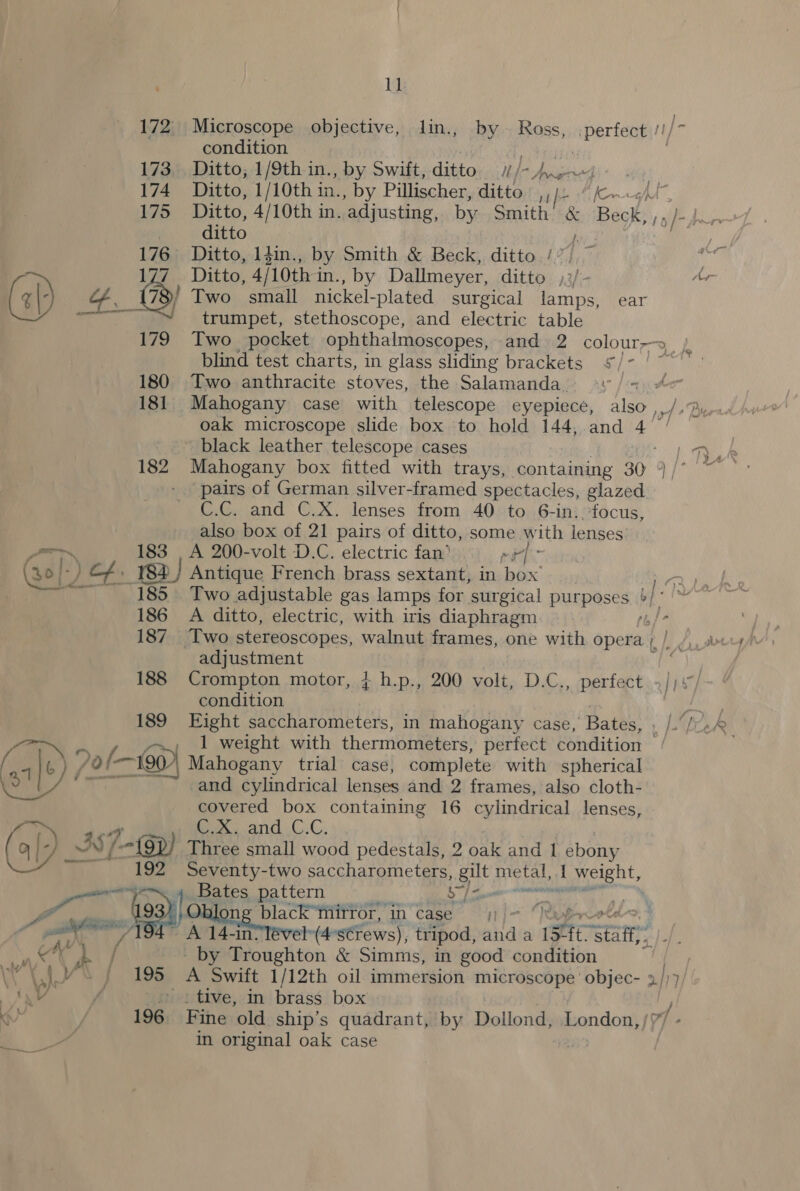 11
172 Microscope objective, 1in., by Ross, perfect 11/-
condition
173 Ditto, 1/9th in., by Swift, ditto
174 Ditto, 1/10th in., by Pillischer, ditto
175 Ditto, 4/10th in. adjusting, by Smith & Beck,
ditto
176 Ditto, 1½in., by Smith & Beck, ditto
177 Ditto, 4/10th in., by Dallmeyer, ditto
178 Two small nickel-plated surgical lamps, ear
trumpet, stethoscope, and electric table
179 Two pocket ophthalmoscopes, and 2 colour-
blind test charts, in glass sliding brackets
180 Two anthracite stoves, the Salamanda
181 Mahogany case with telescope eyepiece, also
oak microscope slide box to hold 144, and 4
black leather telescope cases
182 Mahogany box fitted with trays, containing 30
pairs of German silver-framed spectacles, glazed
C.C. and C.X. lenses from 40 to 6-in. focus,
also box of 21 pairs of ditto, some with lenses
183 A 200-volt D.C. electric fan
(30/-) 184 Antique French brass sextant, in box
185 Two adjustable gas lamps for surgical purposes
186 A ditto, electric, with iris diaphragm
187 Two stereoscopes, walnut frames, one with opera
adjustment
188 Crompton motor, ¼ h.p., 200 volt, D.C., perfect
condition
189 Eight saccharometers, in mahogany case, Bates,
1 weight with thermometers, perfect condition
190 Mahogany trial case, complete with spherical
and cylindrical lenses and 2 frames, also cloth-
covered box containing 16 cylindrical lenses,
C.X. and C.C.
191 Three small wood pedestals, 2 oak and 1 ebony
192 Seventy-two saccharometers, gilt metal, 1 weight,
Bates pattern 5/-
193 Oblong black mirror, in case
194 A 14-in. level (4 screws), tripod, and a 15-ft. staff,
by Troughton & Simms, in good condition
195 A Swift 1/12th oil immersion microscope objec-
tive, in brass box
196 Fine old ship's quadrant, by Dollond, London,
in original oak case